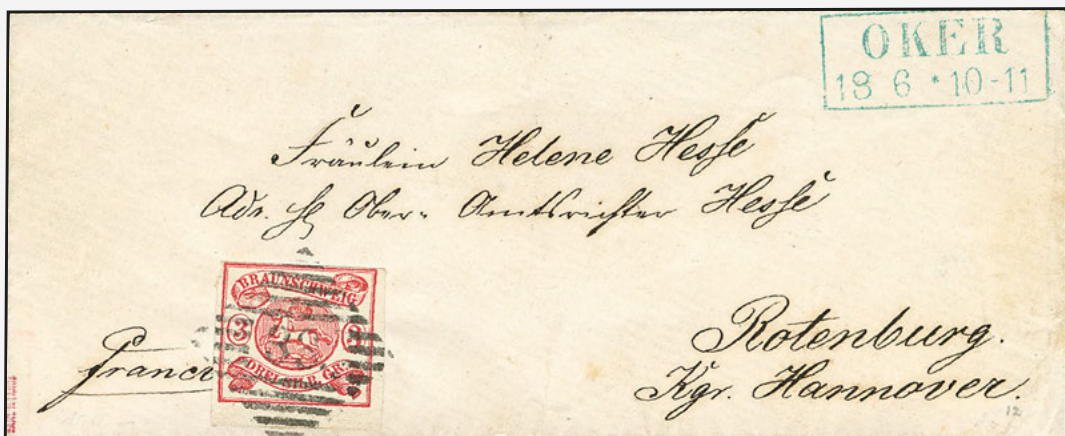 OKER
18 6 * 10-11
Fräulein Helene Hesse
Adr. H Ober- Amtsrichter Hesse
BRAUNSCHWEIG
3 3
DREI SILB. GR.
franco
Rotenburg.
Kgr. Hannover.
12